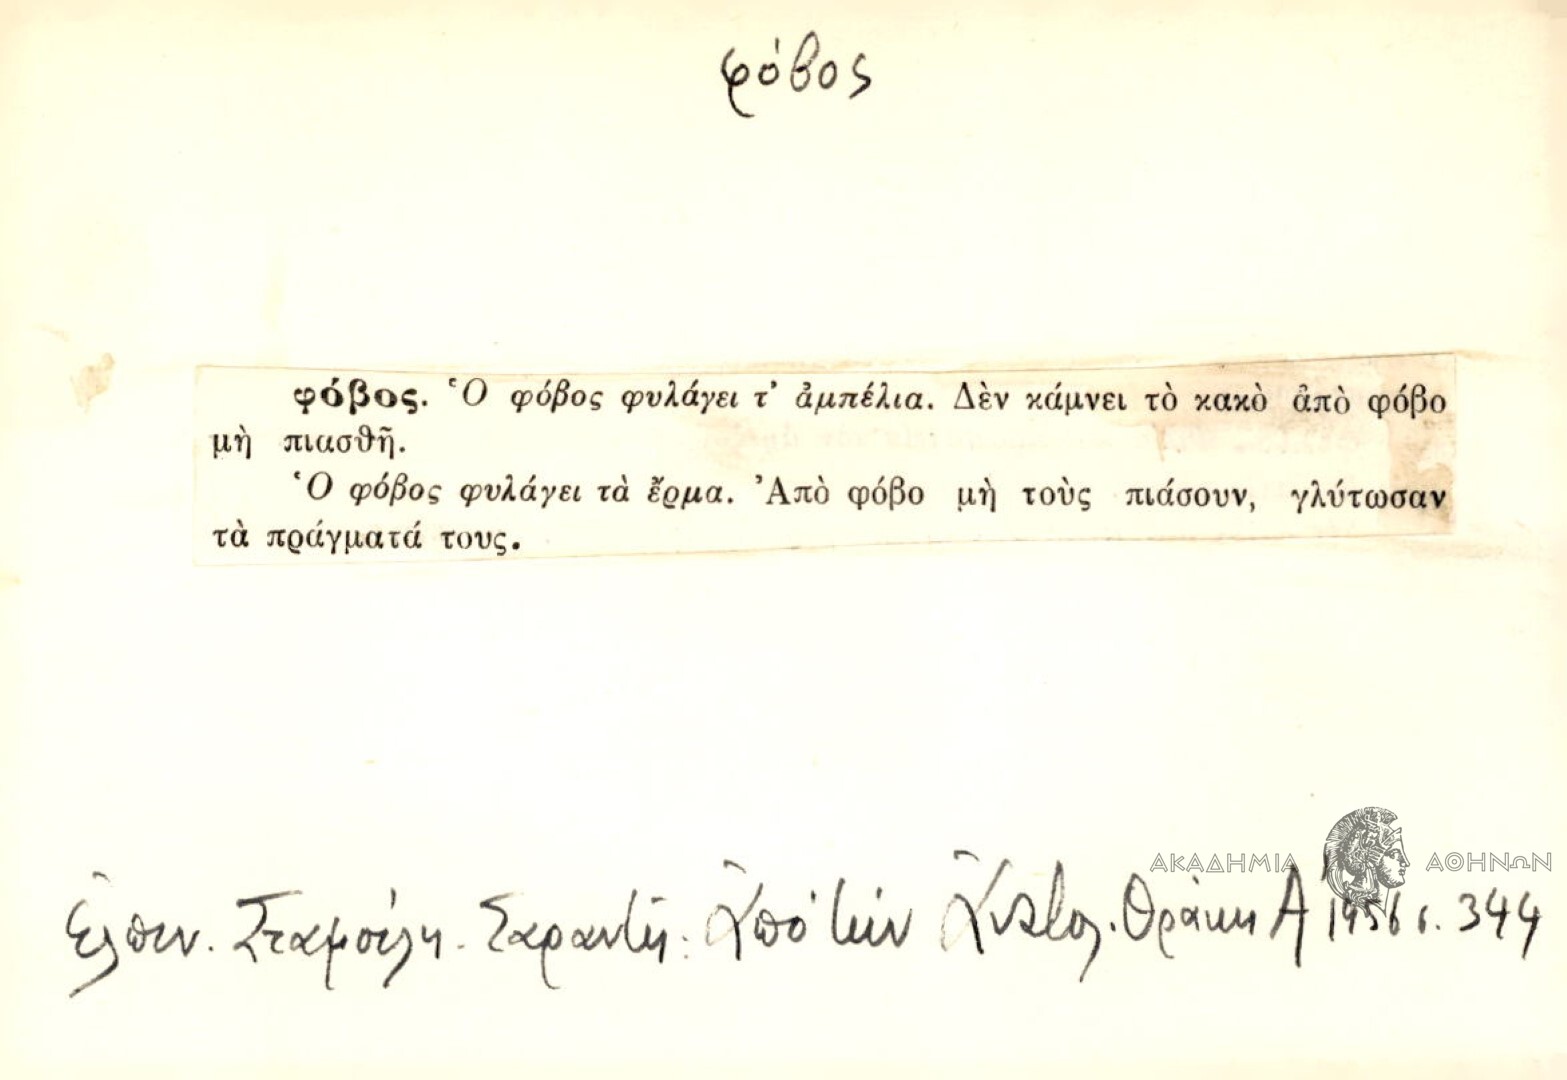 φόβος
φόβος. Ὁ φόβος φυλάγει τ' ἀμπέλια. Δὲν κάμνει τὸ κακὸ ἀπὸ φόβο
μὴ πιασθῆ.
Ὁ φόβος φυλάγει τὰ ἔρμα. Ἀπὸ φόβο μὴ τοὺς πιάσουν, γλύτωσαν
τὰ πράγματά τους.
ΑΚΑΔΗΜΙΑ ΑΘΗΝΩΝ
Ἐλπιν. Σταμούλη - Σαραντῆ: Ἀπὸ τὴν Ἀνατολ. Θράκη Α' 1956 σ. 344